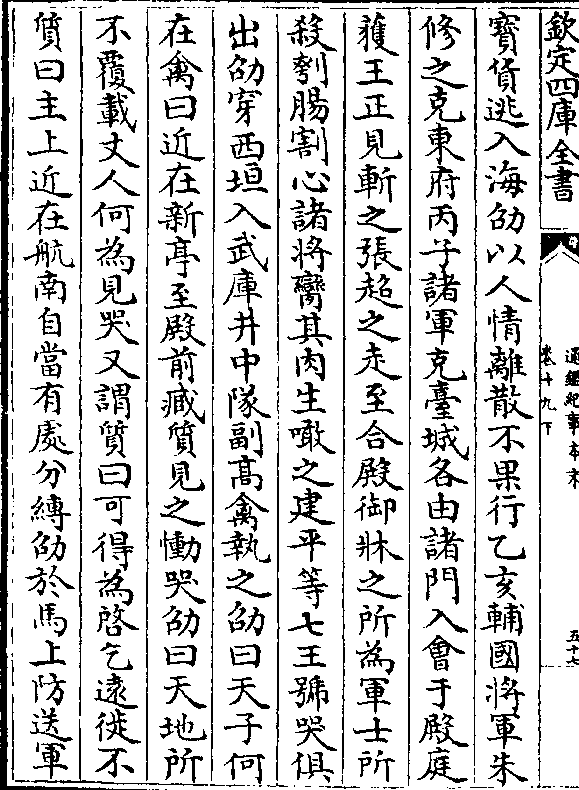 欽定四庫全書
通鑑紀事本末
卷十九下
五十七
寳貨逃入海劭以人情離散不果行乙亥輔國將軍朱
修之克東府丙子諸軍克臺城各由諸門入㑹于殿庭
獲王正見斬之張超之走至合殿御牀之所為軍士所
殺刳腸割心諸將臠其肉生噉之建平等七王號哭俱
出劭穿西垣入武庫井中隊副髙禽執之劭曰天子何
在禽曰近在新亭至殿前臧質見之慟哭劭曰天地所
不覆載丈人何為見哭又謂質曰可得為啓乞逺徙不
質曰主上近在航南自當有處分縳劭於馬上防送軍